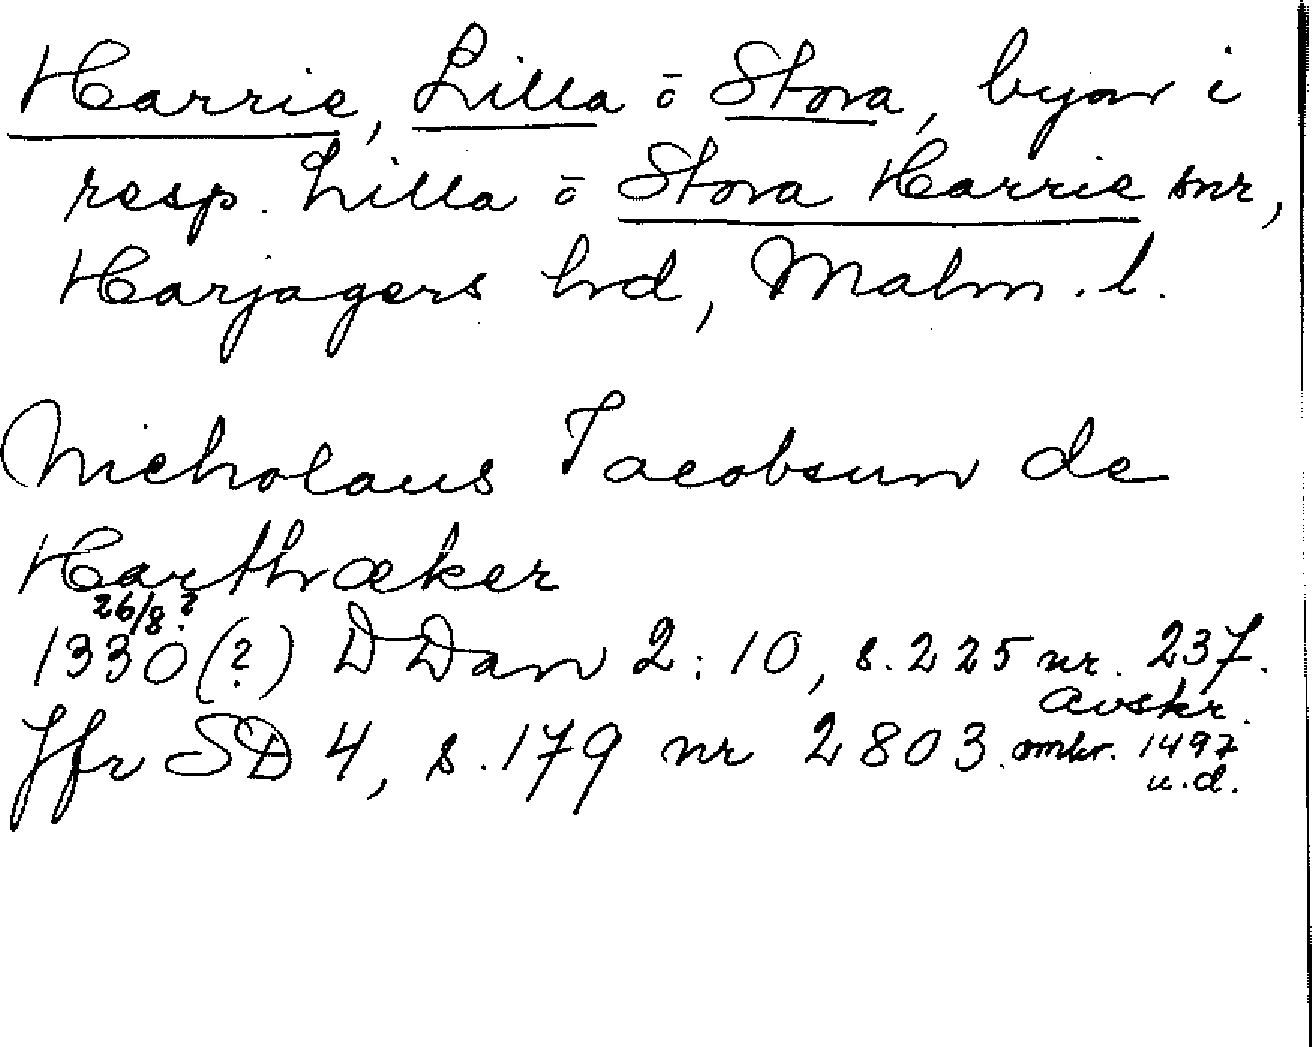 Harrie, Lilla ō Stora, byar i
resp. Lilla ō Stora Harrie snr,
Harjagers hrd, Malm. l.
Nicholaus Jacobsun de
Harthræker
26/8?
1330(?) DDan 2:10, s. 225 nr. 237.
avskr.
Jfr SD 4, s. 179 nr 2803. omkr. 1497
u.d.